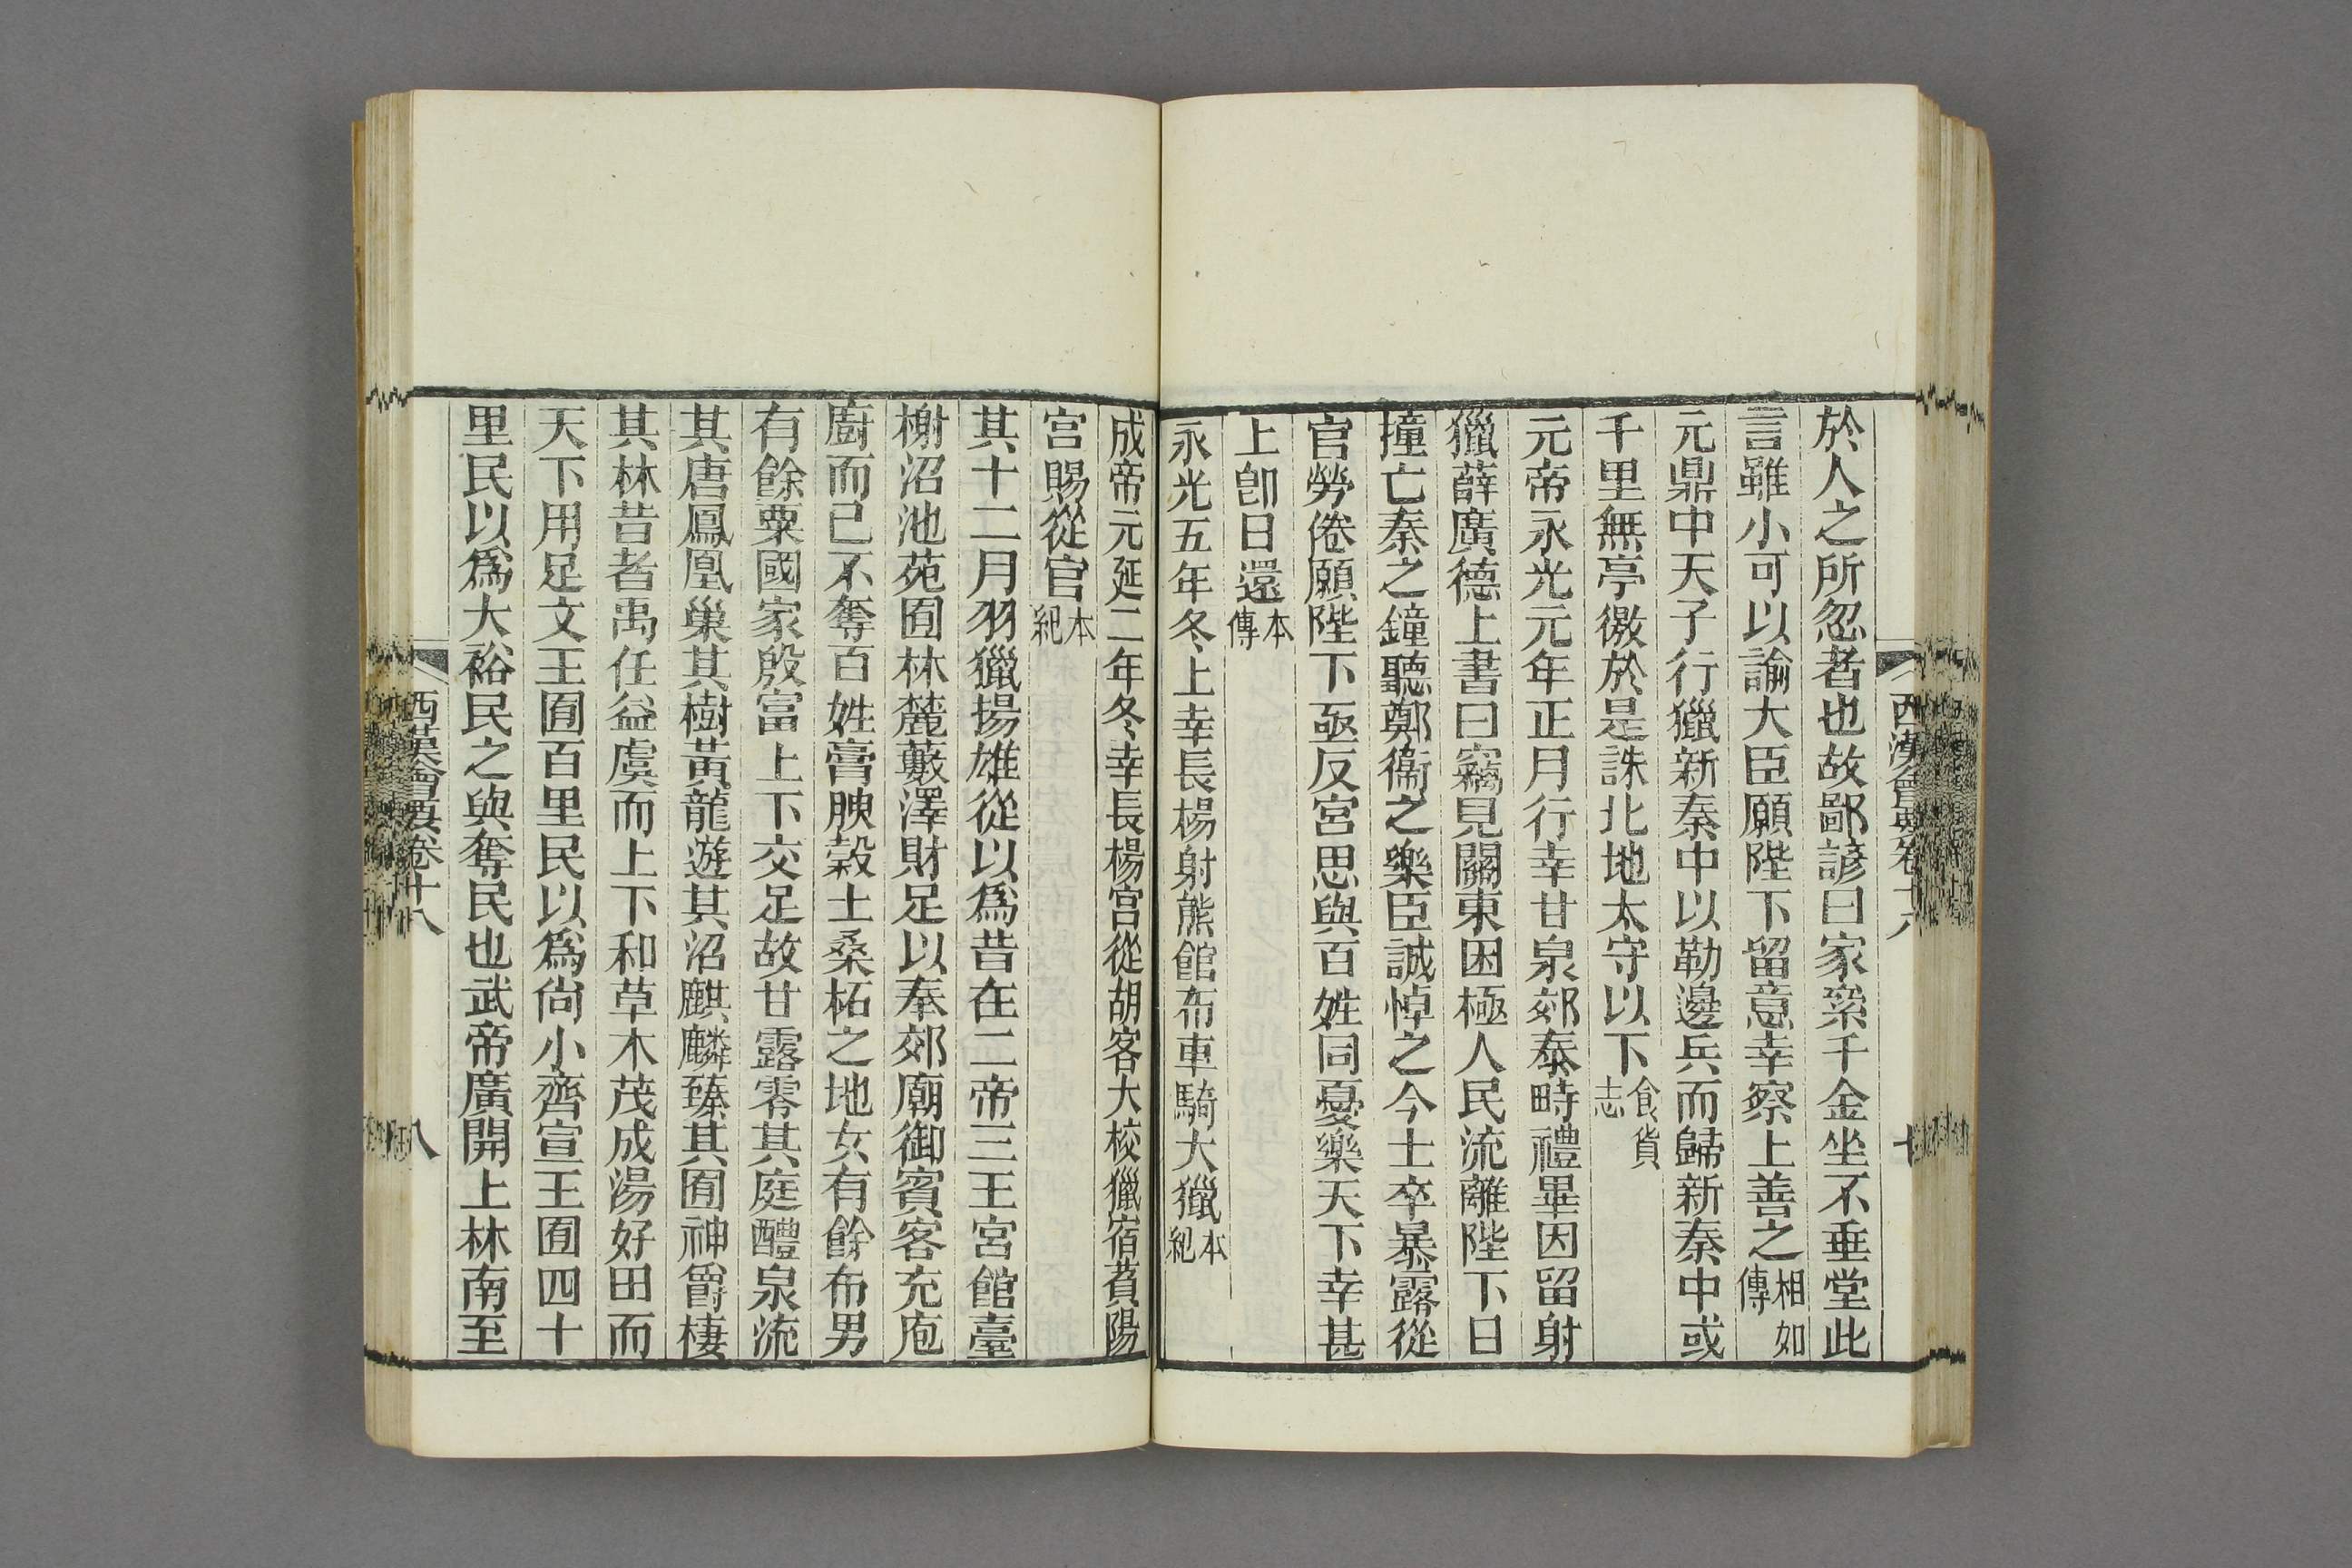 西漢會要卷十八
七
於人之所忽者也故鄙諺曰家絫千金坐不垂堂此
言雖小可以諭大臣願陛下留意幸察上善之相如傳
元鼎中天子行獵新秦中以勒邊兵而歸新秦中或
千里無亭徼於是誅北地太守以下食貨志
元帝永光元年正月行幸甘泉郊泰畤禮畢因留射
獵薛廣德上書曰竊見關東困極人民流離陛下日
撞亡秦之鐘聽鄭衞之樂臣誠悼之今士卒暴露從
官勞倦願陛下亟反宮思與百姓同憂樂天下幸甚
上卽日還本傳
永光五年冬上幸長楊射熊館布車騎大獵本紀
成帝元延二年冬幸長楊宮從胡客大校獵宿萯陽
宮賜從官本紀
其十二月羽獵揚雄從以爲昔在二帝三王宮館臺
榭沼池苑囿林麓藪澤財足以奉郊廟御賓客充庖
廚而已不奪百姓膏腴穀土桑柘之地女有餘布男
有餘粟國家殷富上下交足故甘露零其庭醴泉流
其唐鳳凰巢其樹黃龍遊其沼麒麟臻其囿神爵棲
其林昔者禹任益虞而上下和草木茂成湯好田而
天下用足文王囿百里民以爲尙小齊宣王囿四十
里民以爲大裕民之與奪民也武帝廣開上林南至
西漢會要卷十八
八